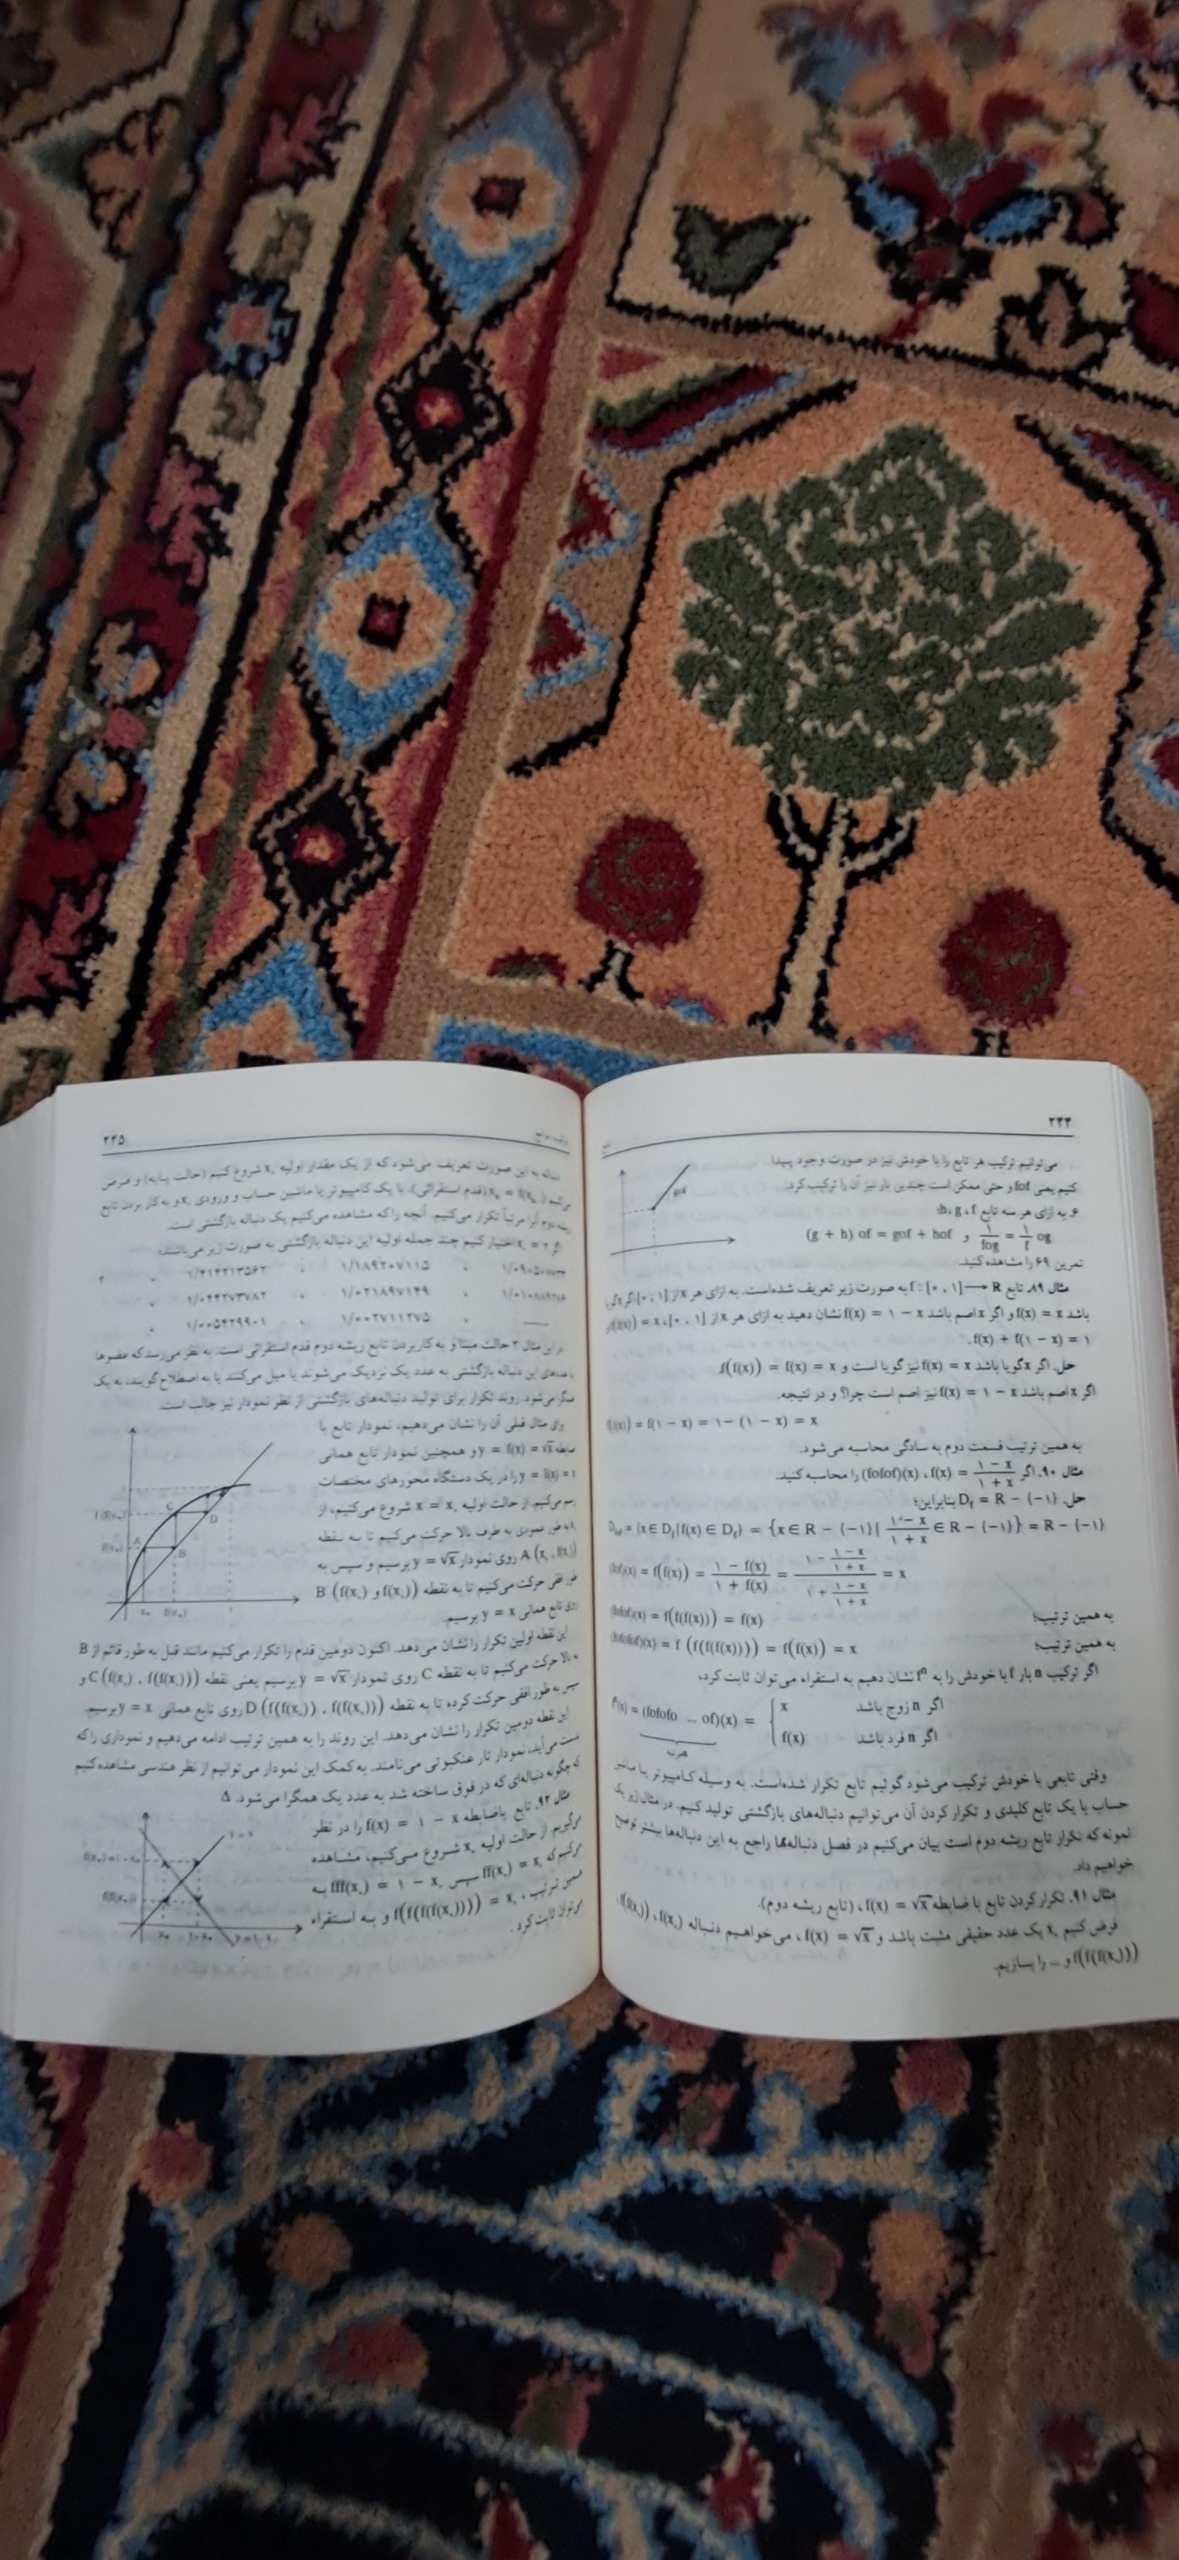 ۲۴۴
می‌توانیم ترکیب هر تابع را با خودش نیز در صورت وجود پیدا
کنیم یعنی fof و حتی ممکن است چندین بار نیز آن را ترکیب کرد.
به ازای هر سه تابع h، g، f:
(g + h) of = gof + hof و 1/fog = 1/f og
تمرین ۶۹ را مشاهده کنید.
gof
مثال ۸۹. تابع f : [۰ , ۱] ⟶ R به صورت زیر تعریف شده‌است. به ازای هر x از [۰ , ۱] اگر x گویا
باشد f(x) = x و اگر x اصم باشد f(x) = ۱ − x نشان دهید به ازای هر x از [۰ , ۱]، f(f(x)) = x
f(x) + f(۱ − x) = ۱.
حل. اگر x گویا باشد f(x) = x نیز گویا است و f(f(x)) = f(x) = x.
اگر x اصم باشد f(x) = ۱ − x نیز اصم است چرا؟ و در نتیجه.
= f(۱ − x) = ۱ − (۱ − x) = x
به همین ترتیب قسمت دوم به سادگی محاسبه می‌شود.
مثال ۹۰. اگر f(x) = (۱ − x)/(۱ + x)، (fofof)(x) را محاسبه کنید.
حل. D_f = R − {−۱} بنابراین؛
= {x ∈ D_f | f(x) ∈ D_f} = {x ∈ R − {−۱} | (۱ − x)/(۱ + x) ∈ R − {−۱}} = R − {−۱}
(fof)(x) = f(f(x)) = (۱ − f(x))/(۱ + f(x)) = (۱ − (۱ − x)/(۱ + x))/(۱ + (۱ − x)/(۱ + x)) = x
به همین ترتیب؛ (fofof)(x) = f(f(f(x))) = f(x)
به همین ترتیب؛ (fofofof)(x) = f (f(f(f(x)))) = f(f(x)) = x
اگر ترکیب n بار f با خودش را به fⁿ نشان دهیم به استقراء می‌توان ثابت کرد،
fⁿ(x) = (fofofo ... of)(x) = { x اگر n زوج باشد
f(x) اگر n فرد باشد
وقتی تابعی با خودش ترکیب می‌شود گوئیم تابع تکرار شده‌است. به وسیله کامپیوتر یا ماشین
حساب با یک تابع کلیدی و تکرار کردن آن می‌توانیم دنباله‌های بازگشتی تولید کنیم. در مثال زیر یک
نمونه که تکرار تابع ریشه دوم است بیان می‌کنیم در فصل دنباله‌ها راجع به این دنباله‌ها بیشتر توضیح
خواهیم داد.
مثال ۹۱. تکرار کردن تابع با ضابطه f(x) = √x، (تابع ریشه دوم).
فرض کنیم x₀ یک عدد حقیقی مثبت باشد و f(x) = √x، می‌خواهیم دنباله f(x₀)، f(f(x₀))،
f(f(f(x₀))) و ... را بسازیم.
۲۴۵
دنباله به این صورت تعریف می‌شود که از یک مقدار اولیه x₀ شروع کنیم (حالت پایه) و فرض
(قدم استقرائی). با یک کامپیوتر یا ماشین حساب و ورودی x₀ و به کار بردن تابع
ریشه دوم آن را مرتباً تکرار می‌کنیم. آنچه را که مشاهده می‌کنیم یک دنباله بازگشتی است.
اگر x₀ = ۲ اختیار کنیم چند جمله اولیه این دنباله بازگشتی به صورت زیر می‌باشند؛
۲ , ۱/۴۱۴۲۱۳۵۶۲ , ۱/۱۸۹۲۰۷۱۱۵ , ۱/۰۹۰۵۰۷۷۳۳
, ۱/۰۴۴۲۷۳۷۸۲ , ۱/۰۲۱۸۹۷۱۴۹ , ۱/۰۱۰۸۸۹۲۸۶
, ۱/۰۰۵۴۲۹۹۰۱ , ۱/۰۰۲۷۱۱۲۷۵ ,
در این مثال ۲ حالت مبنا و به کار بردن تابع ریشه دوم قدم استقرائی است. به نظر می‌رسد که عضوها
این دنباله بازگشتی به عدد یک نزدیک می‌شوند یا میل می‌کنند یا به اصطلاح گویند، به یک
همگرا می‌شود. روند تکرار برای تولید دنباله‌های بازگشتی از نظر نمودار نیز جالب است.
برای مثال قبلی آن را نشان می‌دهیم، نمودار تابع با
ضابطه y = f(x) = √x و همچنین نمودار تابع همانی
y = I(x) = x را در یک دستگاه محورهای مختصات
رسم می‌کنیم. از حالت اولیه x = x₀ شروع می‌کنیم، از
به طور عمودی به طرف بالا حرکت می‌کنیم تا به نقطه
A (x₀ , f(x₀)) روی نمودار y = √x برسیم و سپس به
طور افقی حرکت می‌کنیم تا به نقطه B (f(x₀) , f(x₀))
روی تابع همانی y = x برسیم.
A
B
C
D
این نقطه اولین تکرار را نشان می‌دهد. اکنون دومین قدم را تکرار می‌کنیم مانند قبل به طور قائم از B
به بالا حرکت می‌کنیم تا به نقطه C روی نمودار y = √x برسیم یعنی نقطه C (f(x₀) , f(f(x₀))) و
سپس به طور افقی حرکت کرده تا به نقطه D (f(f(x₀)) , f(f(x₀))) روی تابع همانی y = x برسیم.
این نقطه دومین تکرار را نشان می‌دهد. این روند را به همین ترتیب ادامه می‌دهیم و نموداری را که
بدست می‌آید، نمودار تار عنکبوتی می‌نامند. به کمک این نمودار می‌توانیم از نظر هندسی مشاهده کنیم
که چگونه دنباله‌ای که در فوق ساخته شد به عدد یک همگرا می‌شود. Δ
مثال ۹۲. تابع باضابطه f(x) = ۱ − x را در نظر
می‌گیریم. از حالت اولیه x₀ شروع می‌کنیم، مشاهده
می‌کنیم که ff(x₀) = x₀ سپس fff(x₀) = ۱ − x₀ به
همین ترتیب، f(f(f(f(x₀)))) = x₀ و به استقراء
می‌توان ثابت کرد.
y = x